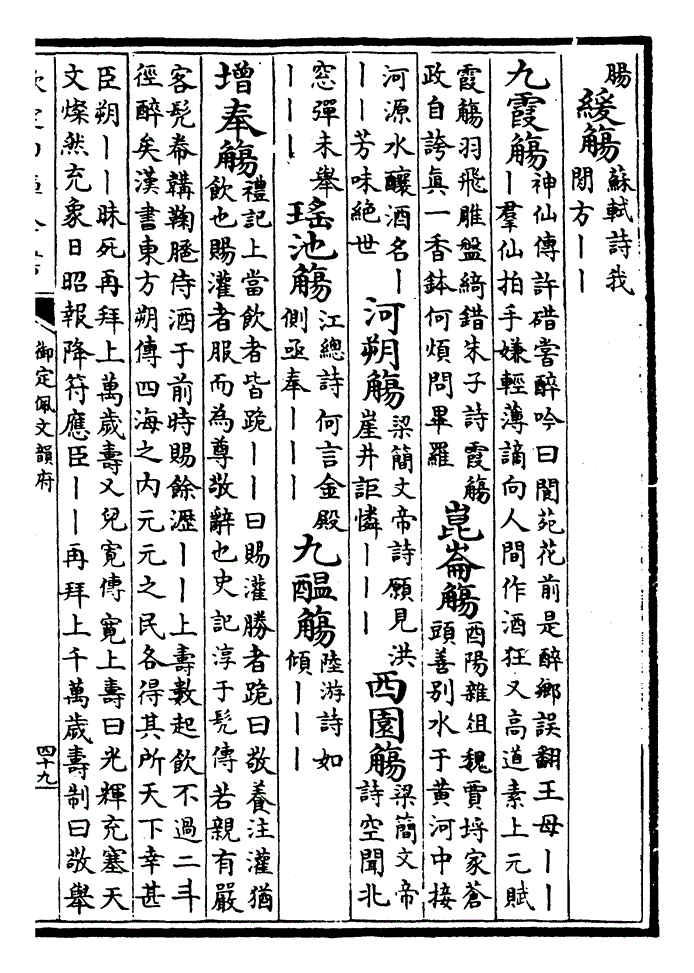 腸
緩觴 蘇軾詩我
閒方丨丨
九霞觴 神仙傳許碏嘗醉吟曰閬苑花前是醉鄉誤翻王母丨丨
丨羣仙拍手嫌輕薄謫向人間作酒狂又高道素上元賦
霞觴羽飛雕盤綺錯朱子詩霞觴
政自誇真一香鉢何煩問畢羅
崑崙觴 酉陽雜俎魏賈㙛家蒼
頭善別水于黃河中接
河源水釀酒名丨
丨丨芳味絕世
河朔觴 梁簡文帝詩願見洪
崖井詎憐丨丨丨
西園觴 梁簡文帝
詩空聞北
窓彈未舉
丨丨丨
瑤池觴 江總詩何言金殿
側亟奉丨丨丨
九醖觴 陸游詩如
傾丨丨丨
增奉觴 禮記上當飲者皆跪丨丨曰賜灌勝者跪曰敬養注灌猶
飲也賜灌者服而為尊敬辭也史記淳于髠傳若親有嚴
客髠帣韝鞠䠆侍酒于前時賜餘瀝丨丨上壽數起飲不過二斗
徑醉矣漢書東方朔傳四海之內元元之民各得其所天下幸甚
臣朔丨丨昧死再拜上萬歲壽又兒寬傳寬上壽曰光輝充塞天
文燦然充象日昭報降符應臣丨丨再拜上千萬歲壽制曰敬舉
御定佩文韻府
四十九